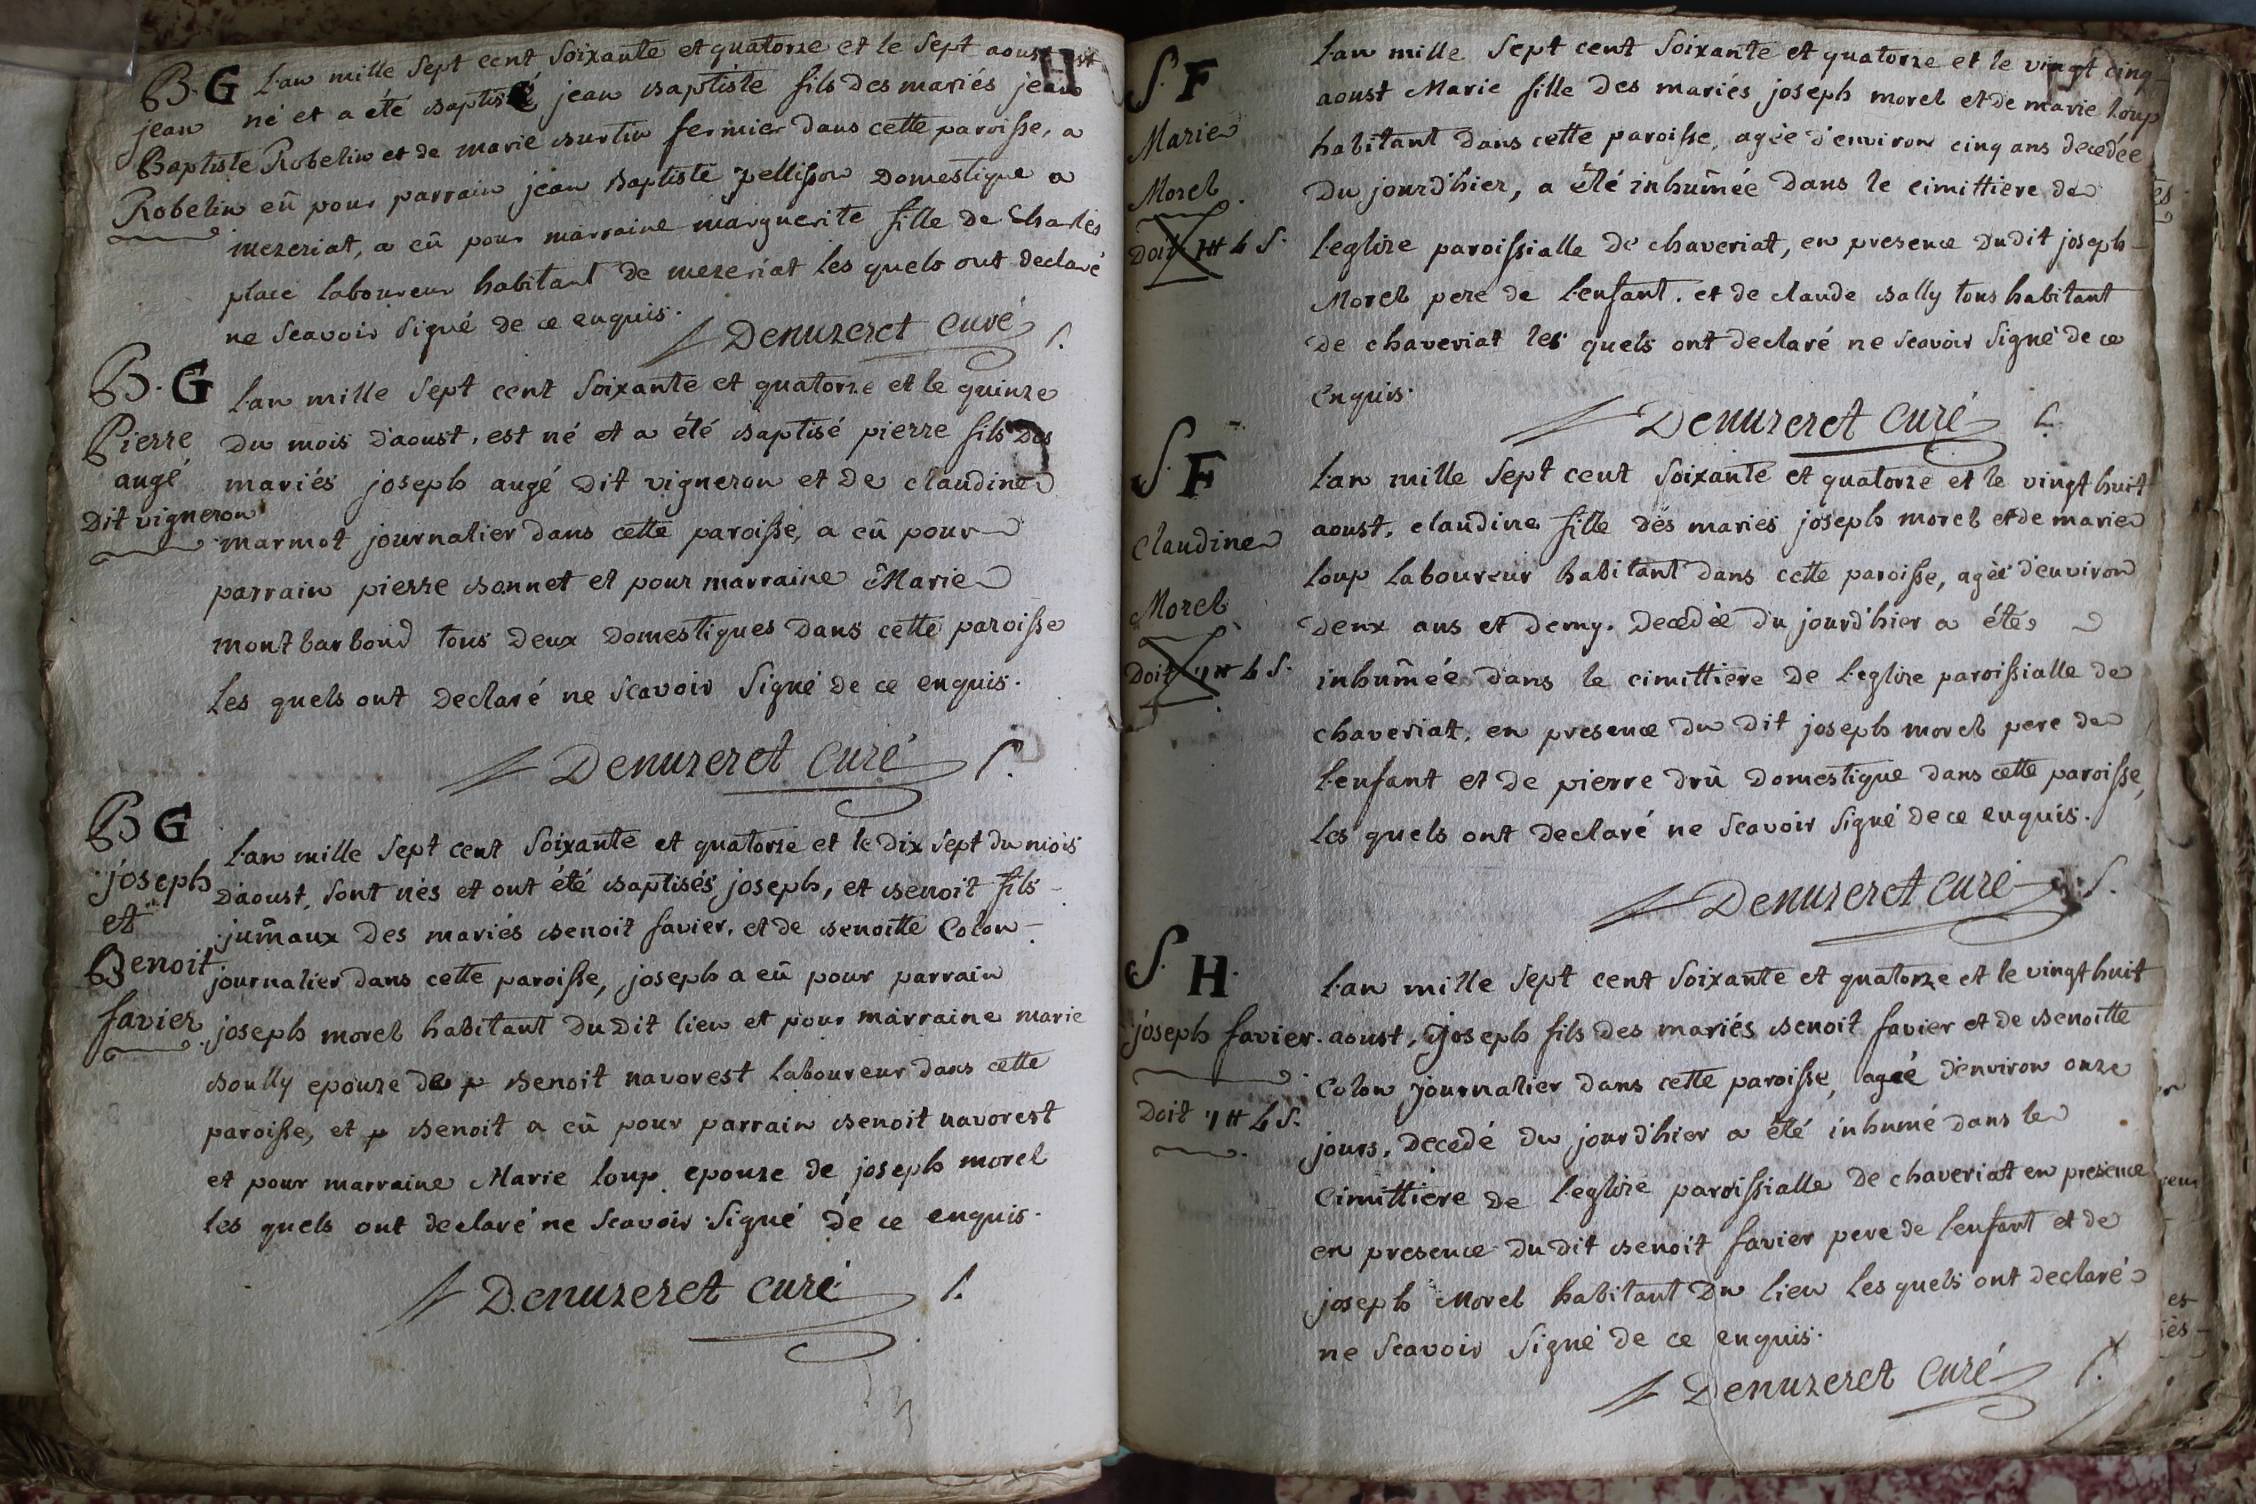 B. G
jean
Baptiste
Robelin
L'an mille sept cent soixante et quatorze et le sept aoust est
né et a été baptisé jean baptiste fils des mariés jean
Robelin et de marie burtin fermier dans cette paroisse, a
eû pour parrain jean baptiste pellisson domestique a
mezeriat, a eû pour marraine marguerite fille de Charles
place laboureur habitant de mezeriat les quels ont declaré
ne scavoir signé de ce enquis.
Denuzeret curé
B. G
Pierre
augé
dit vigneron
L'an mille sept cent soixante et quatorze et le quinze
du mois d'aoust, est né et a été baptisé pierre fils des
mariés joseph augé dit vigneron et de claudine
marmot journalier dans cette paroisse, a eû pour
parrain pierre bonnet et pour marraine Marie
montbarbond tous deux domestiques dans cette paroisse
les quels ont declaré ne scavoir signé de ce enquis.
Denuzeret curé
B G
joseph
et
Benoit
favier
L'an mille sept cent soixante et quatorze et le dix sept du mois
d'aoust, sont nés et ont été baptisés joseph, et benoit fils
jumaux des mariés benoit favier, et de benoitte Colon
journalier dans cette paroisse, joseph a eû pour parrain
joseph morel habitant du dit lieu et pour marraine marie
boully epouze de benoit navorest laboureur dans cette
paroisse, et benoit a eû pour parrain benoit navorest
et pour marraine Marie loup epouze de joseph morel
les quels ont declaré ne scavoir signé de ce enquis.
Denuzeret curé
S. F
Marie
Morel
Doit 1tt 4 s.
L'an mille sept cent soixante et quatorze et le vingt cinq
aoust Marie fille des mariés joseph morel et de marie loup
habitant dans cette paroisse, agée d'environ cinq ans decedée
du jourd'hier, a été inhumée dans le cimittiere de
l'eglize paroissialle de chaveriat, en presence du dit joseph
Morel pere de l'enfant. et de claude bally tous habitant
de chaveriat les quels ont declaré ne scavoir signé de ce
enquis.
Denuzeret curé
S. F
Claudine
Morel
Doit 1tt 4 s.
L'an mille sept cent soixante et quatorze et le vingt huit
aoust, claudine fille des mariés joseph morel et de marie
loup laboureur habitant dans cette paroisse, agée d'environ
deux ans et demy. decedée du jourd'hier a été
inhumée dans le cimittiere de l'eglize paroissialle de
chaveriat, en presence du dit joseph morel pere de
l'enfant et de pierre drû domestique dans cette paroisse,
les quels ont declaré ne scavoir signé de ce enquis.
Denuzeret curé
S. H.
joseph favier.
Doit 1tt 4 s.
L'an mille sept cent soixante et quatorze et le vingt huit
aoust, joseph fils des mariés benoit favier et de benoitte
Colon journalier dans cette paroisse, agée d'environ onze
jours, decedé du jourd'hier a été inhumé dans le
cimittiere de l'eglize paroissialle de chaveriat en presence
en presence du dit benoit favier pere de l'enfant et de
joseph Morel habitant du lieu les quels ont declaré
ne scavoir signé de ce enquis.
Denuzeret curé